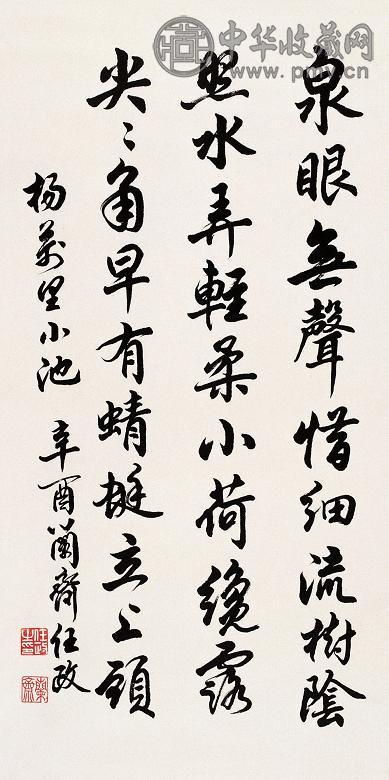 泉眼無聲惜細流樹陰
照水弄輕柔小荷纔露
尖〻角早有蜻蜓立上頭
楊萬里小池 辛酉蘭齋任政
中华收藏网
www.pmy.cn